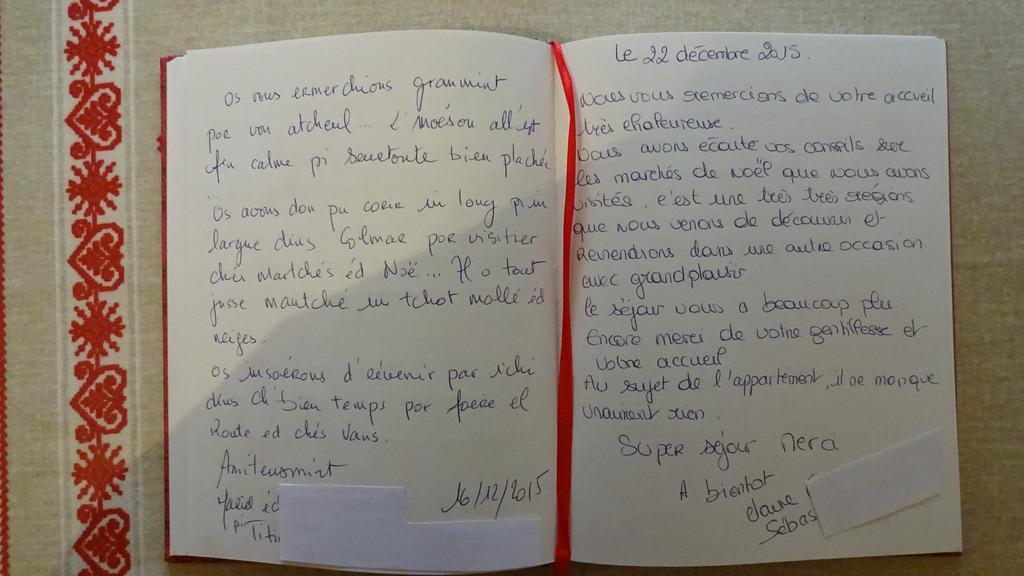 Os vous ermerchions granmint
por vou atcheul... L'moésou all'est
fin calme pi seurtoute bien plachée
Os avons don pu corir in long pi in
largue dins Colmar por visitier
chés martchés éd Noë... Il o tout
jusse mantché un tchot mollé éd
neiges...
Os insoérons d'érvenir par ichi
dins ch'bien temps por foere el
Route ed chés Vans.
Amiteusmint
éd
pi Titi
16/12/2015
Le 22 décembre 2015.
Nous vous remercions de votre accueil
très chaleureuse.
Nous avons écouté vos conseils sur
les marchés de Noël que nous avons
visités, c'est une très très régions
que nous venons de découvrir et
Reviendrons dans une autre occasion
avec grand plaisir.
le séjour nous a beaucoup plu.
Encore merci de votre gentillesse et
votre accueil.
Au sujet de l'appartement, il ne manque
vraiment rien.
Super séjour Merci
A bientot
Sébas